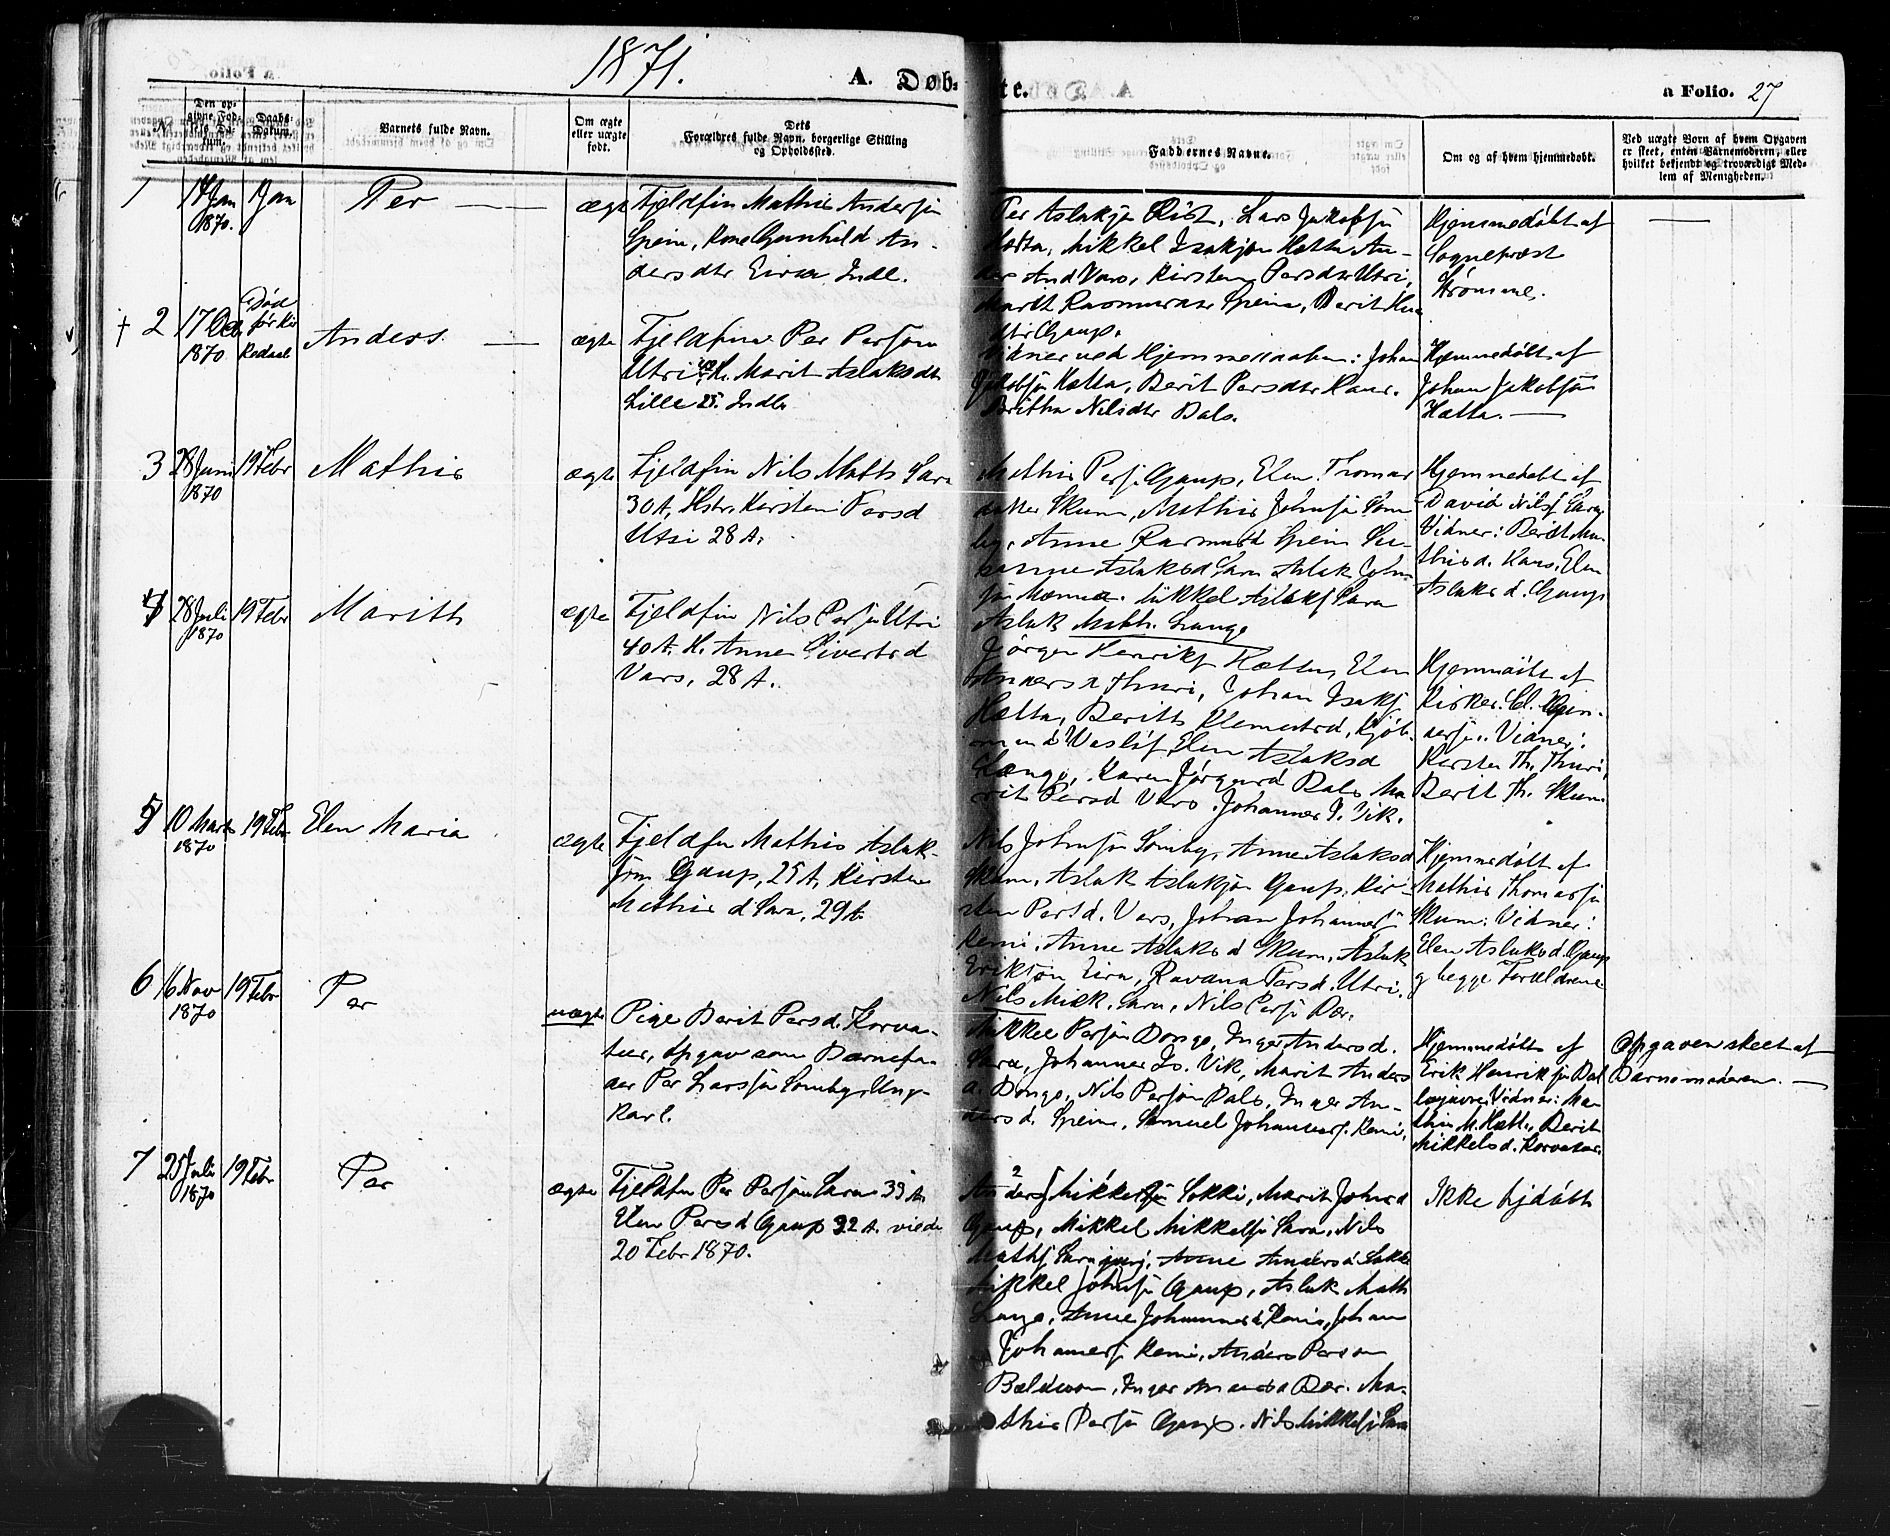 1871.
A. Døb-
te.
a Folio. 27
No.
Den op-
givne Fød-
sels Da-
tum.
Daabs-
Datum.
Barnets fulde Navn.
Om ægte
eller uægte
født.
Dets
Forældres fulde Navn, borgerlige Stilling
og Opholdssted.
Faddernes Navne.
Om og af hvem hjemmedøbt.
Ved uægte Børn af hvem Opgaven
er skeet, enten Barnemoderen, eller
hvilket bekjendt og troværdigt Med-
lem af Menigheden.
1
Jan
1870.
Jan
Per
ægte
Fjeldfin Mathis Andersen
Spein, Kone Gunhild An-
dersdtr Eira Indl.
Per Aslaksen Rist, Lars Jakobsøn
Hætta, Mikkel Isaksøn Hætta An-
And Vars, Kirsten Persdtr Utsi,
Marit Spein, Berit
Gaup.
Hjemmedøbt af
Sognepræst
Strømme.
† 2
17
1870
Død
før Kir
Anders
ægte
Fjeldfin Per Persøn
Utsi H. Marit Aslaksdtr
Lille Indl.
Vidner ved Hjemmedaaben: Johan
Jakobsøn Hætta, Berit Persdtr
Nilsdtr Bals.
Hjemmedøbt af
Johan Jakobsøn
Hætta.
3
28 Juni
1870
19 Febr
Mathis
ægte
Fjeldfin Nils Matts Sara
30 A, Hstr. Kirsten Persd
Utsi 28 A.
Mathis Persøn Gaup, Elen Thomas
datter Skum, Mathis Johnsøn Som
by, Anne Rasmusd Spein Su-
sanne Aslaksd Sara Aslak John
søn Mikkel Aslaksøn Sara
Aslak Math. Lango
Hjemmedøbt af
David Nilss Sara
Vidner: Berit Ma-
thisd. Elen
Aslaks d. Gaup
4
28 Juli
1870
19 Febr
Marith
ægte
Fjeldfin Nils Persøn Utsi
40 A. H. Anne Sivertsd
Vars, 28 A.
Jørgen Henriks Hætta, Elen
Anders d Thuri, Johan Isaks
Hætta, Berith Klemetsd, Kjøb-
mand Elen Aslaksd
Lango, Karen Jørgensd Bals Ma
rit Persd Vars. Johannes I. Vik.
Hjemmedøbt af
Kirkes.
Vidner:
Kirsten Th. Thuri,
Berit Th. Skum
5
10 Marts
1870
19 Febr
Elen Maria
ægte
Fjeldfin Mathis Aslak-
søn Gaup, 25 A, Kirsten
Mathis d Sara, 29 A.
Nils Johnsøn Somby, Anne Aslaksd
Skum, Aslak Aslaksøn Gaup, Kir-
sten Persd. Vars, Johan Johannes
Kemi, Anne Aslaks d Skum, Aslak
Eriksøn Eira, Ravana Persd. Utsi.
Nils Mikk. Sara, Nils Persøn Bær.
Hjemmedøbt af
Mathis Thomassøn
Skum: Vidner:
Elen Aslaksd. Gaup
og begge Forældrene
6
16 Nov
1870
19 Febr
Per
uægte
Pige Berit Persd. Korva-
tus, Opgav som Barnefa-
der Per Larssøn Somby, Ung-
karl.
Mikkel Persøn Bongo, Inger Anders d.
Sara, Johannes Is. Vik, Marit Anders
d. Bongo, Nils Persøn Bals, Inger An-
ders d. Spein, Samuel Johanness. Kemi,
Hjemmedøbt af
Erik Henriksøn Bal
Vidner: Ma-
this M. Hætta, Berit
Mikkels d. Korvatus.
Opgaven skeet af
Barnemoderen.
7
25 Juli
1870
19 Febr
Per
ægte
Fjeldfin Per Persøn Sara 33 A.
Elen Persd Gaup 32 A. viede
20 Febr 1870.
Anders Mikkelsøn Sokki, Marit Johnsd
Gaup, Mikkel Mikkelsøn Sara, Nils
Maths Sara junj, Anne Anders d. Sokki
Mikkel Johnsøn Gaup, Aslak Math
Lango, Anne Johannesd. Kemi, Johan
Johannes Kemi, Anders Person
Inger Bær. Ma-
this Persøn Gaup. Nils Mikkelsøn Sara
Ikke hjdøbt